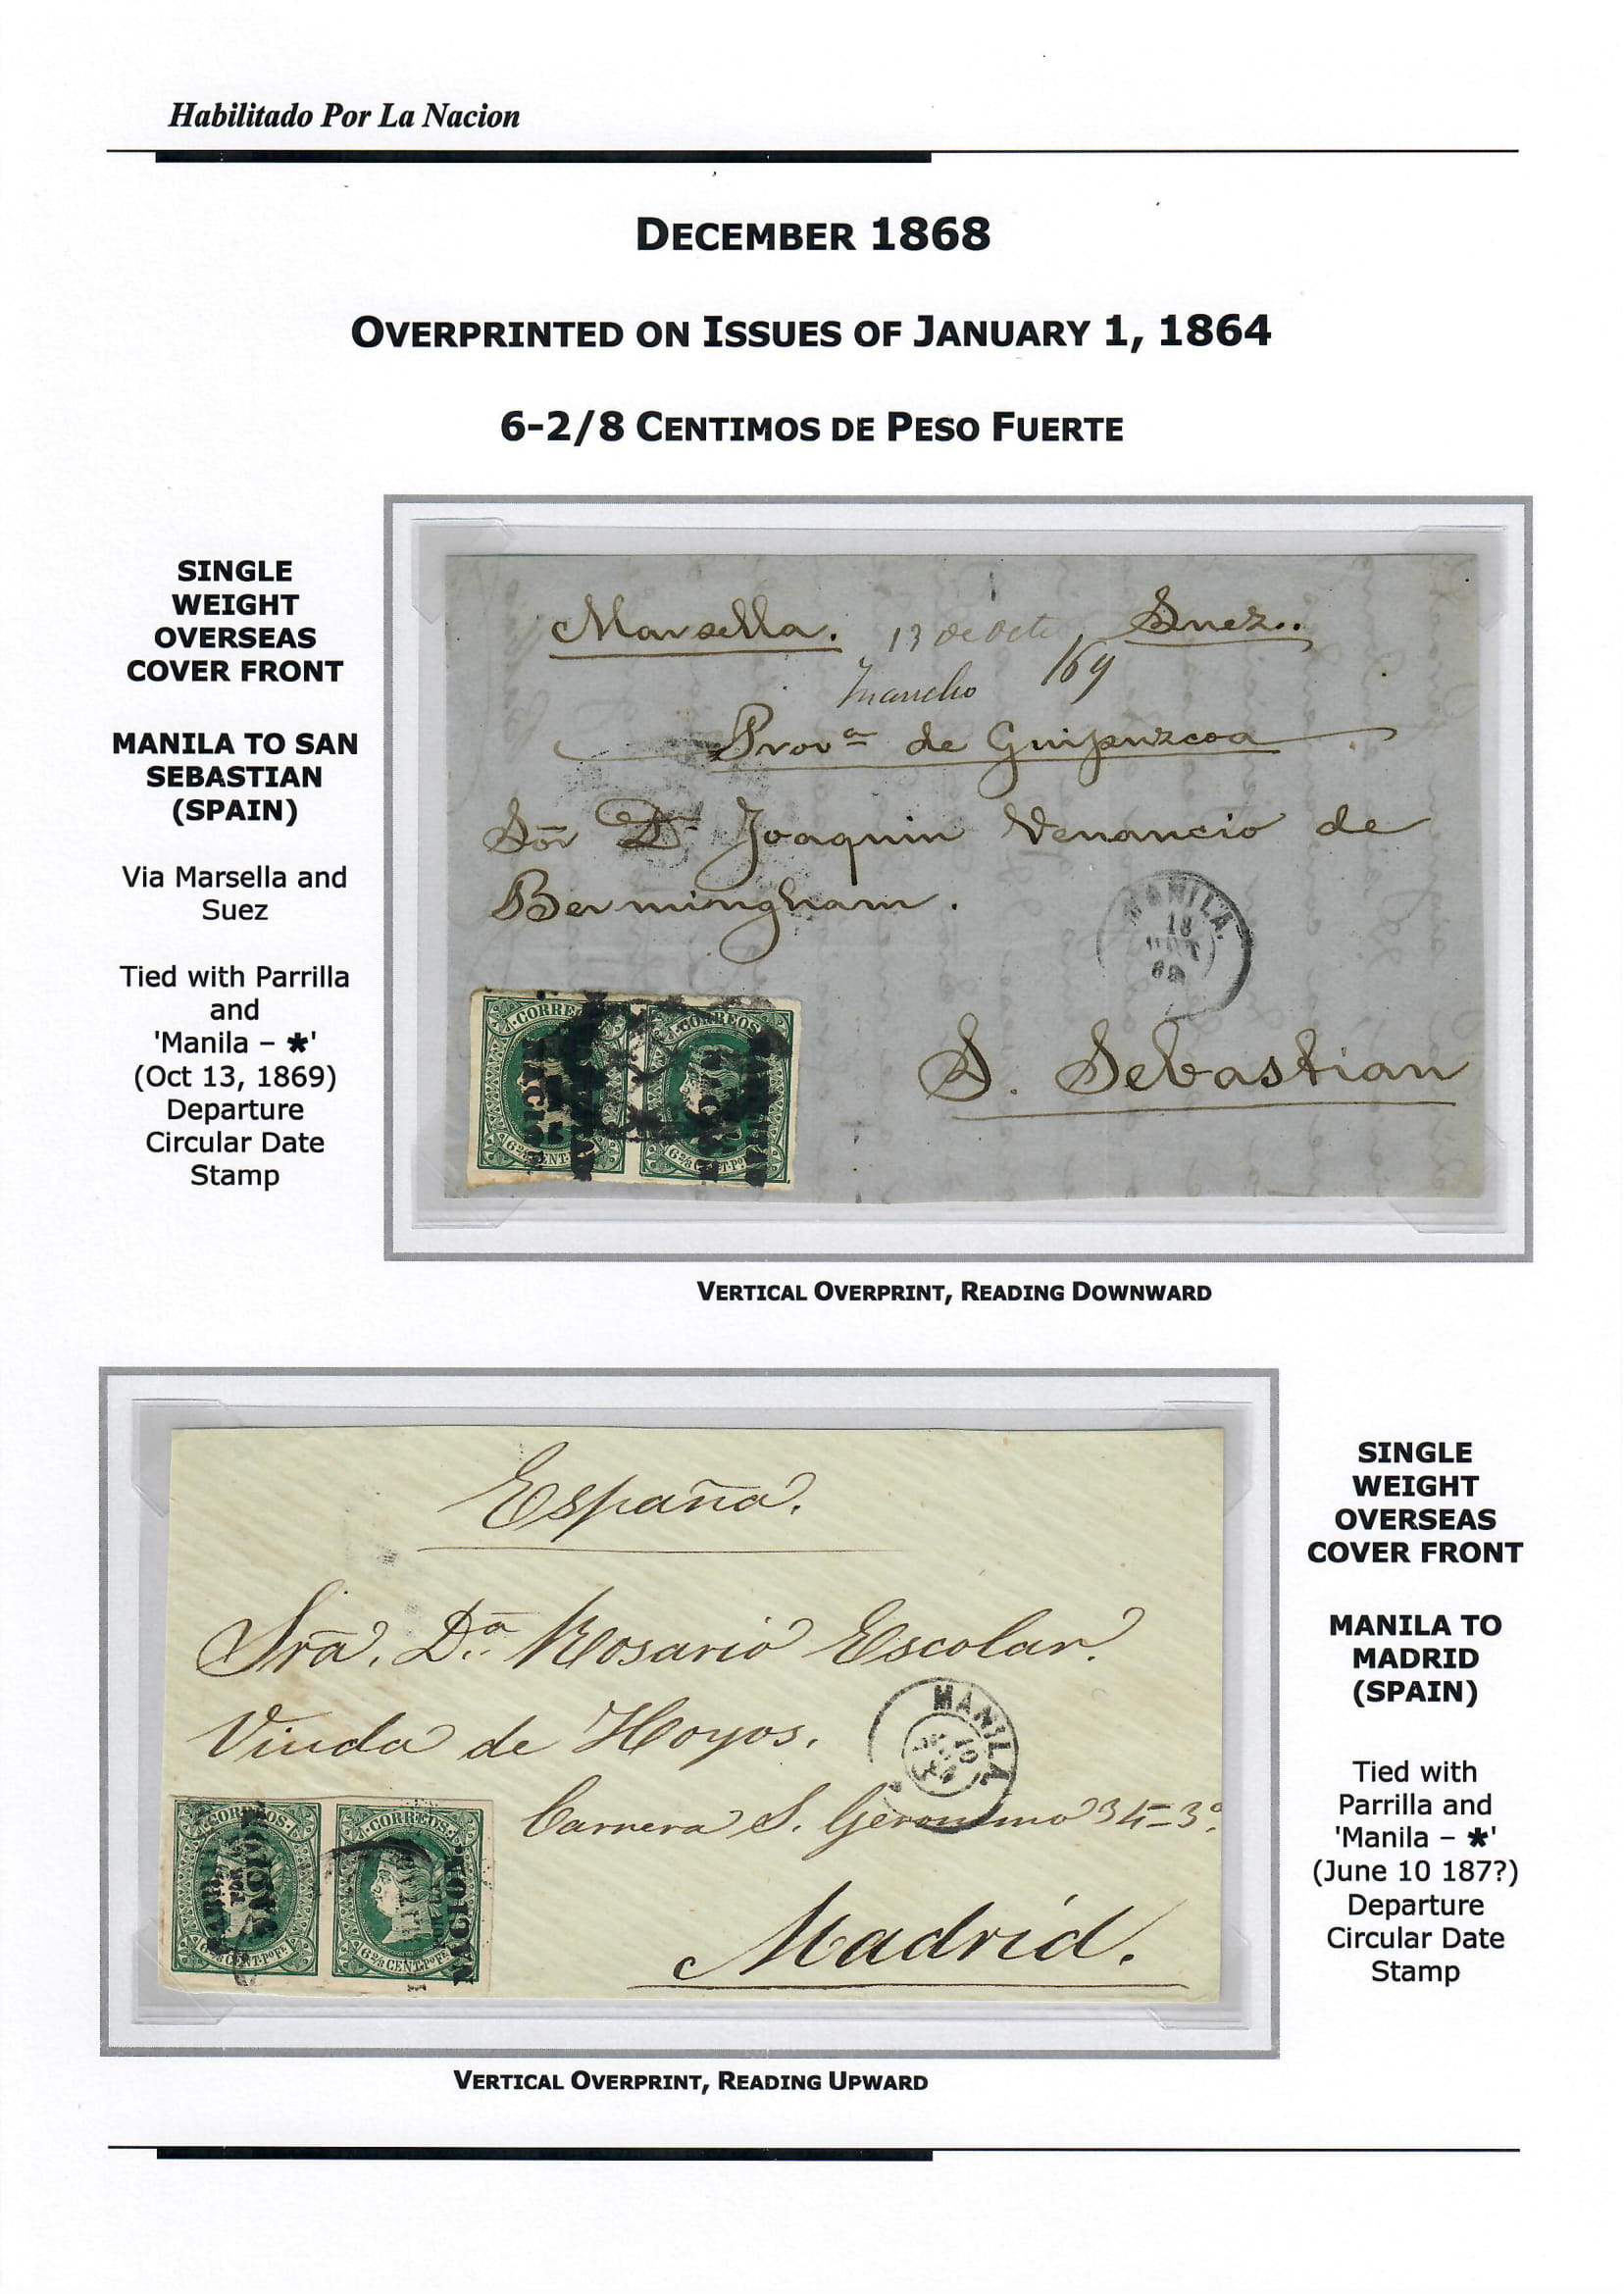 Habilitado Por La Nacion
DECEMBER 1868
OVERPRINTED ON ISSUES OF JANUARY 1, 1864
6-2/8 CENTIMOS DE PESO FUERTE
SINGLE
WEIGHT
OVERSEAS
COVER FRONT
MANILA TO SAN
SEBASTIAN
(SPAIN)
Via Marsella and
Suez
Tied with Parrilla
and
'Manila – *'
(Oct 13, 1869)
Departure
Circular Date
Stamp
Marsella. 13 de Octe Suez..
/69
Prova de Guipuzcoa
Sor Dn Joaquin Venancio de
Bermingham.
MANILA
69
S. Sebastian
CORREOS
CORREOS
VERTICAL OVERPRINT, READING DOWNWARD
España.
Sra. Da. Rosario Escolar.
Viuda de Hoyos.
MANILA
10
Carrera S. Geronimo 34-3o.
Madrid.
CORREOS
CORREOS
NACION
NACION.
6 2/8 CENT. PO FE.
6 2/8 CENT. PO FE.
SINGLE
WEIGHT
OVERSEAS
COVER FRONT
MANILA TO
MADRID
(SPAIN)
Tied with
Parrilla and
'Manila – *'
(June 10 187?)
Departure
Circular Date
Stamp
VERTICAL OVERPRINT, READING UPWARD